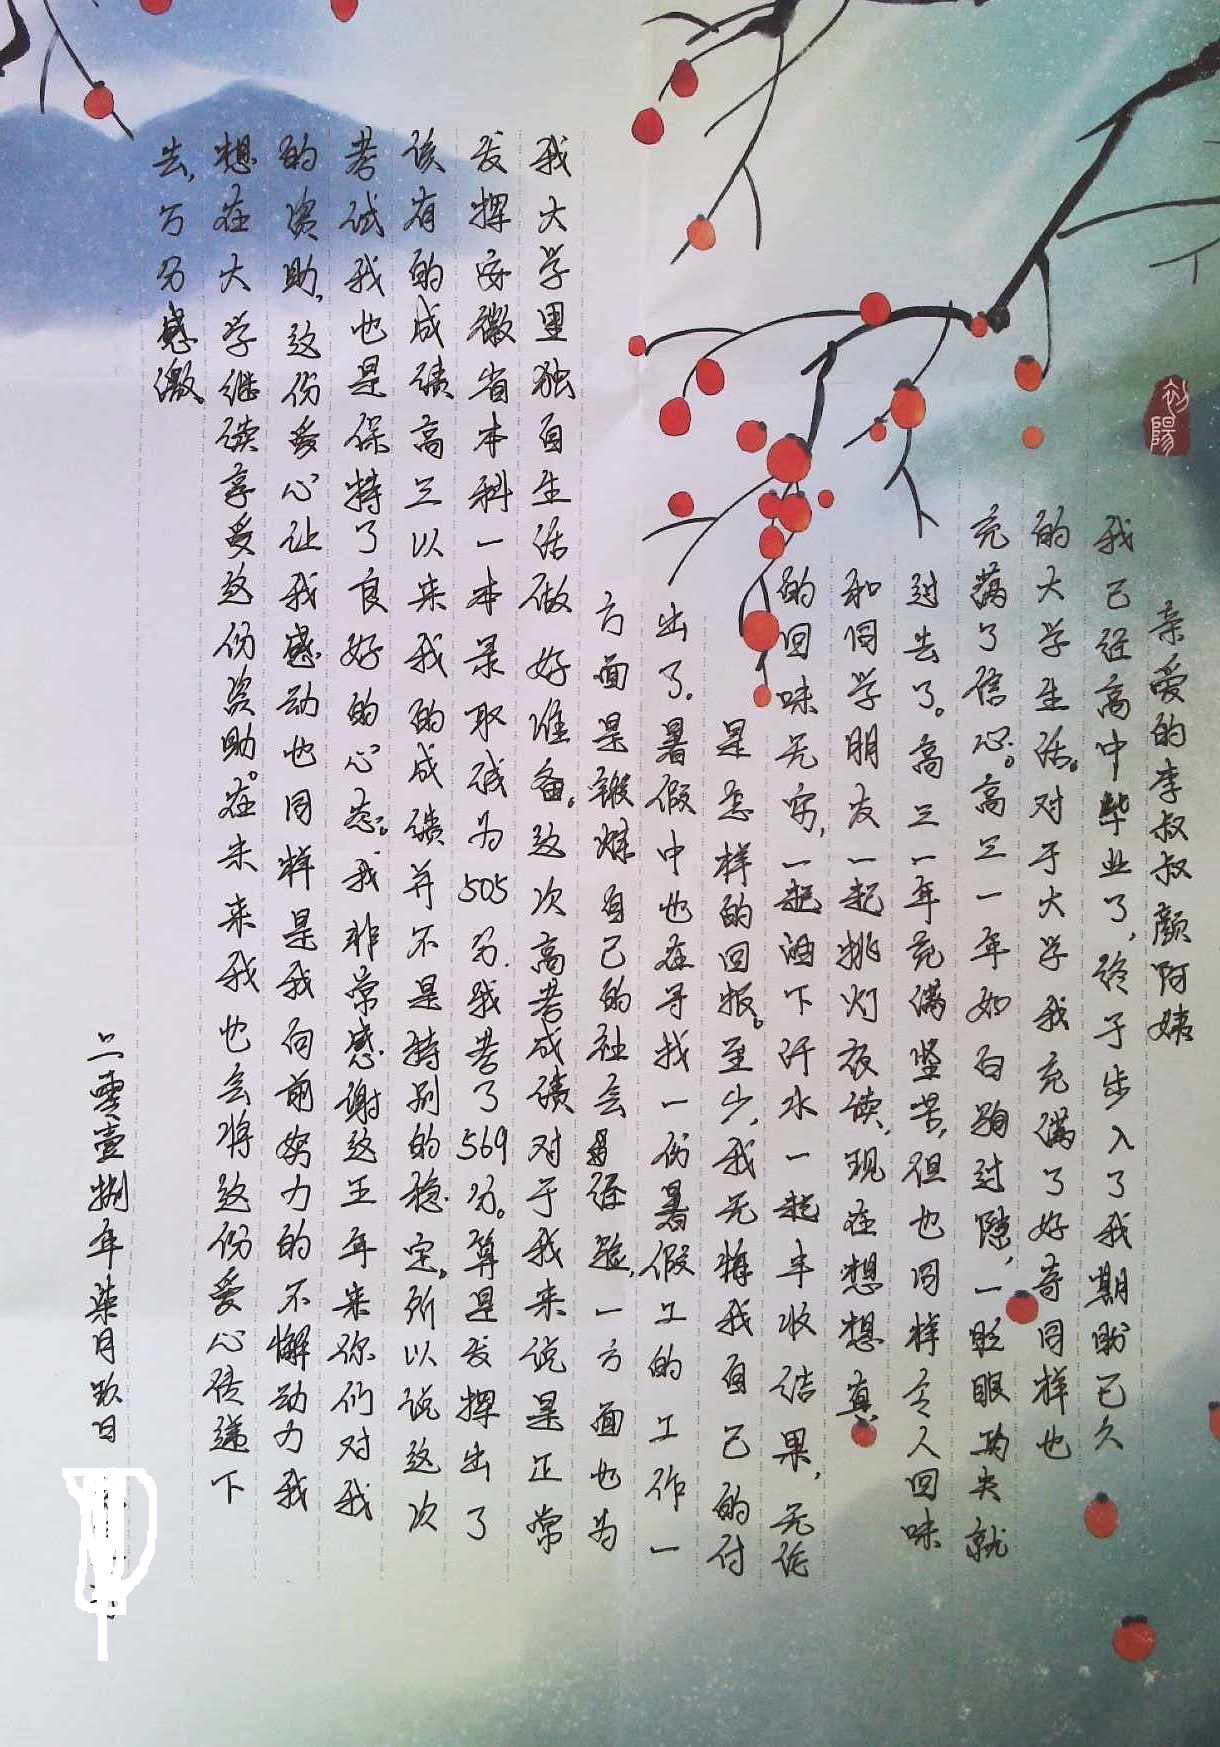 亲爱的李叔叔颜阿姨
我已经高中毕业了，终于步入了我期盼已久
的大学生活。对于大学我充满了好奇同样也
充满了信心。高三一年如白驹过隙，一眨眼的失就
过去了。高三一年充满坚苦，但也同样令人回味
和同学朋友一起挑灯夜读，现在想想真
的回味无穷，一起洒下汗水一起丰收结果，无论
是怎样的回报。至少，我无悔我自己的付
出了。暑假中也在寻找一份暑假工的工作一
方面是锻炼自己的社会经验，一方面也为
我大学里独自生活做好准备。这次高考成绩对于我来说是正常
发挥安徽省本科一本录取诚为505分.我考了569分。算是发挥出了
该有的成绩高三以来我的成绩并不是特别的稳定。所以说这次
考试我也是保持了良好的心态。我非常感谢这三年来你们对我
的资助，这份爱心让我感动也同样是我向前努力的不懈动力我
想在大学继续享受这份资助。在未来我也会将这份爱心传递下
去，万分感激。
二零壹捌年柒月玖日
初陽